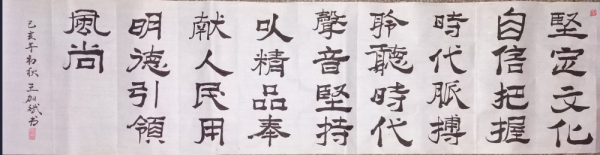 堅定文化
自信把握
時代脈搏
聆聽時代
聲音堅持
以精品奉
献人民用
明德引領
風尚
己亥年初秋王加斌书